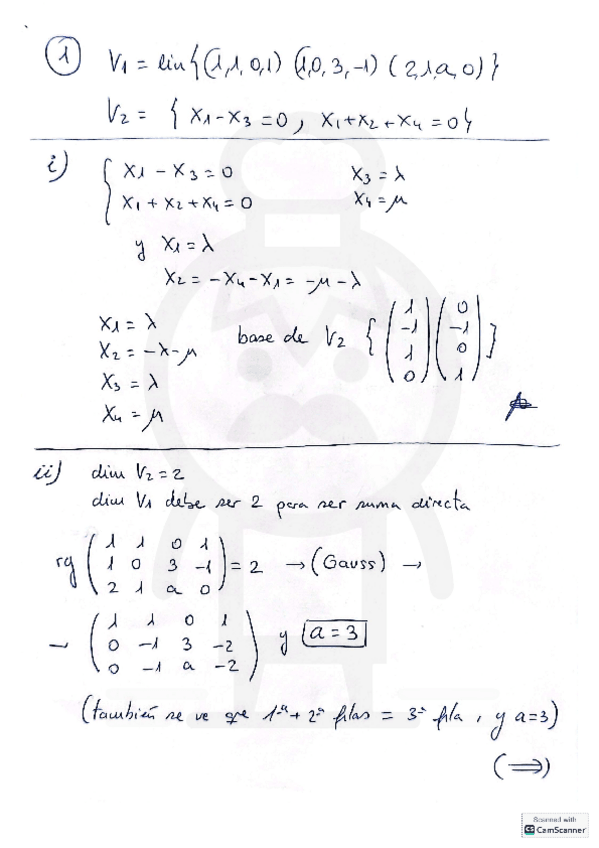 1 V1 = lin{(1,1,0,1) (1,0,3,-1) (2,1,a,0)}
V2 = { x1-x3=0, x1+x2+x4=0}
i) { x1 - x3 = 0 x3 = λ
x1 + x2 + x4 = 0 x4 = μ
y x1 = λ
x2 = -x4 - x1 = -μ - λ
x1 = λ
x2 = -λ-μ
x3 = λ
x4 = μ
base de V2 { (1 -1 1 0) (0 -1 0 1) }
ii) dim V2 = 2
dim V1 debe ser 2 para ser suma directa
rg ( 1 1 0 1
1 0 3 -1
2 1 a 0 ) = 2 → (Gauss) →
→ ( 1 1 0 1
0 -1 3 -2
0 -1 a -2 ) y a = 3
(también se ve que 1ª + 2ª filas = 3ª fila, y a=3)
(⟹)
Scanned with
CS CamScanner